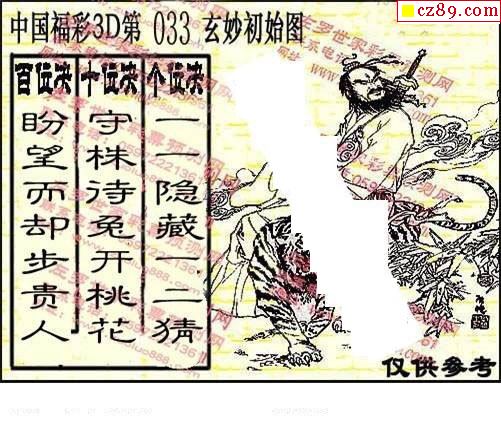 cz89.com
中国福彩3D第 033 玄妙初始图
百位决
盼望而却步贵人
十位决
守株待兔开桃花
个位决
一一隐藏一二猜
仅供参考